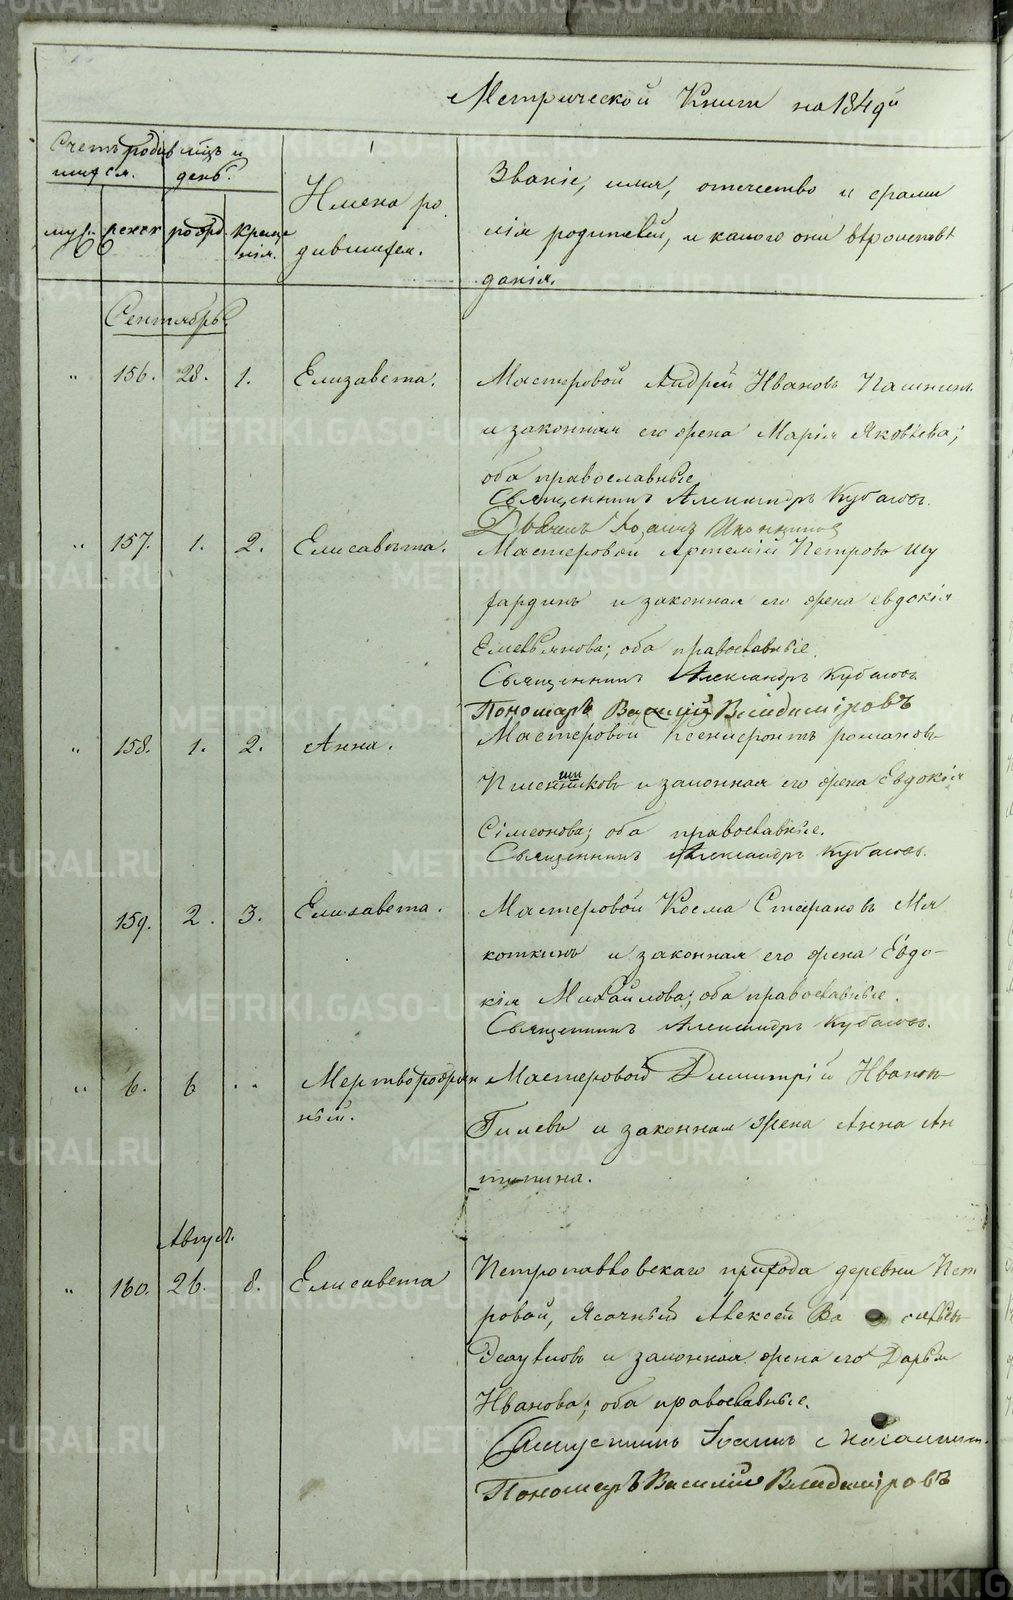 Метрической Книги на 1849й
Счетъ родив
шихся.
мѣсь и
день.
муж. женск рожд. Креще
нія.
Имена ро
дившихся.
Званіе, имя, отчество и фами
лія родителей, и какого они вѣроисповѣ
данія.
Сентябрь.
" 156. 28. 1. Елизавета. Мастеровой Андрей Ивановъ
и законная его жена Марія Яковлева;
оба православные
Священникъ Александръ Кубасовъ.
Дьячекъ Іоаннъ
" 157. 1. 2. Елисавета. Мастеровой Артемій Петровъ Шу
фардинъ и законная его жена Евдокія
Емельянова; оба православные.
Священникъ Александръ Кубасовъ
Пономарь Василій Владиміровъ
" 158. 1. 2. Анна. Мастеровой Ксенофонтъ Романовъ
и законная его жена Евдокія
Сімеонова; оба православные.
Священникъ Александръ Кубасовъ.
159. 2. 3. Елизавета. Мастеровой Косма Стефановъ Мя
коткинъ и законная его жена Евдо-
кія Михайлова; оба православные.
Священникъ Александръ Кубасовъ.
" 6. 6 " Мертворожден
ный.
Мастеровой Димитрій Ивановъ
Гилевъ и законная жена Анна Ан
типина.
Август.
" 160. 26. 8. Елисавета Петропавловскаго прихода деревни Пет
ровой, Ясачный Алексей Ва сильевъ
и законная жена его Дарья
Иванова; оба православные.
Іоаннъ
Пономарь Василій Владиміровъ
METRIKI.GASO-URAL.RU